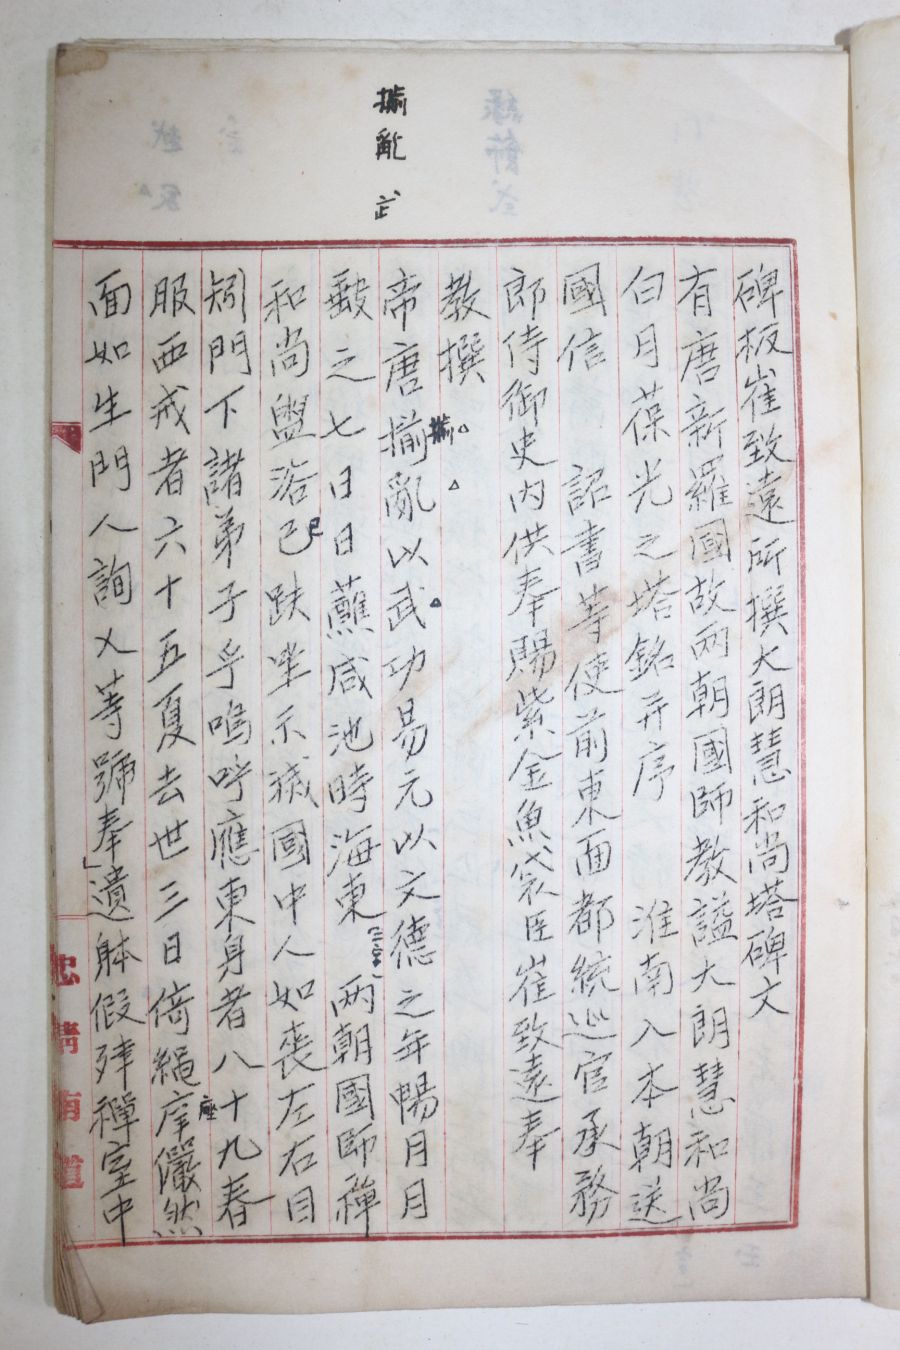 揃亂 武
碑板崔致遠所撰大朗慧和尚塔碑文
有唐新羅國故兩朝國師教謚大朗慧和尚
白月葆光之塔銘并序 淮南入本朝送
國信 詔書等使前東面都統巡官承務
郎侍御史內供奉賜紫金魚袋臣崔致遠奉
教撰
帝唐揃亂以武功易元以文德之年暢月月
缺之七日日蘸咸池時海東 兩朝國師禪
和尚盥浴已趺坐示滅國中人如喪左右目
矧門下諸弟子乎嗚呼應東身者八十九春
服西戒者六十五夏去世三日倚繩座儼然
面如生門人詢乂等號奉遺躰假殔禪室中
忠清南道